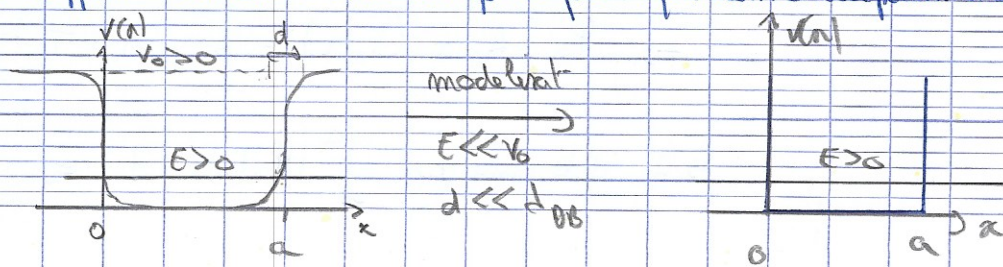 V(x)
V₀>0
d
E>0
0
a
x
modelisat°
E<<V₀
d << λ_DB
V(x)
E>0
0
a
x